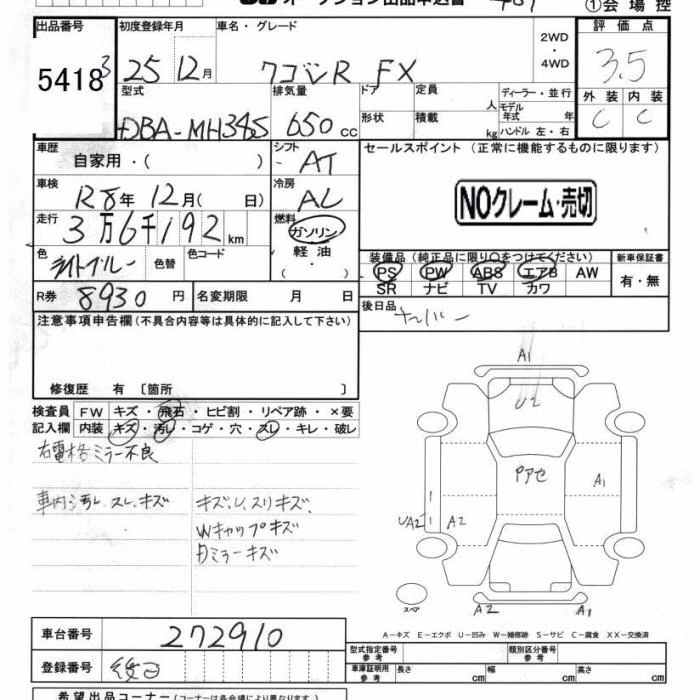 オークション出品申込書
①会場控
出品番号 初度登録年月 車名・グレード 2WD・4WD 評価点
5418 3 25 12月 ワゴンR FX 3.5
型式 排気量 ドア 定員 人 ディーラー・並行 外装 内装
DBA-MH34S 650 cc 形状 積載 kg モデル年式 年 ハンドル 左・右 C C
車歴 自家用・( ) シフト AT セールスポイント (正常に機能するものに限ります)
車検 R8年 12月( 日) 冷房 AC
NOクレーム・売切
走行 3万6千192 km 燃料 ガソリン 軽油
色 ライトブルー 色替 色コード
装備品 (純正品に限り○をつけてください) 新車保証書
PS PW ABS エアB AW 有・無
SR ナビ TV カワ
R券 8930 円 名変期限 月 日
後日品 ナンバー
注意事項申告欄 (不具合内容等は具体的に記入して下さい)
修復歴 有 〔箇所 〕
検査員 FW キズ・飛石・ヒビ割・リペア跡・×要
記入欄 内装 キズ・汚レ・コゲ・穴・スレ・キレ・破レ
右電格ミラー不良
車内汚レ、スレ、キズ
キズ、U、スリキズ、
Wキャップキズ
ミラーキズ
A1
U2
Pアセ
A1
UA2
A2
スペア
A2
A1
A-キズ E-エクボ U-凹み W-補修跡 S-サビ C-腐食 XX-交換済
車台番号 272910
登録番号 後日
型式指定番号 参考 類別区分番号 参考
車庫証明用 参考 長さ cm 幅 cm 高さ cm
希望出品コーナー (コーナーは各会場により異なります)